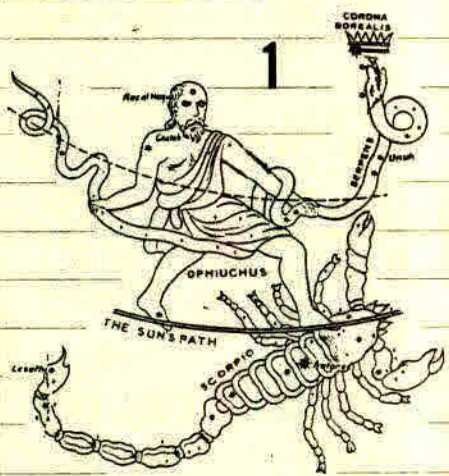 CORONA
BOREALIS
1
Ras al Hagus
Cheleb
SERPENS
Unuk
OPHIUCHUS
THE SUN'S PATH
SCORPIO
Lesath
Antares